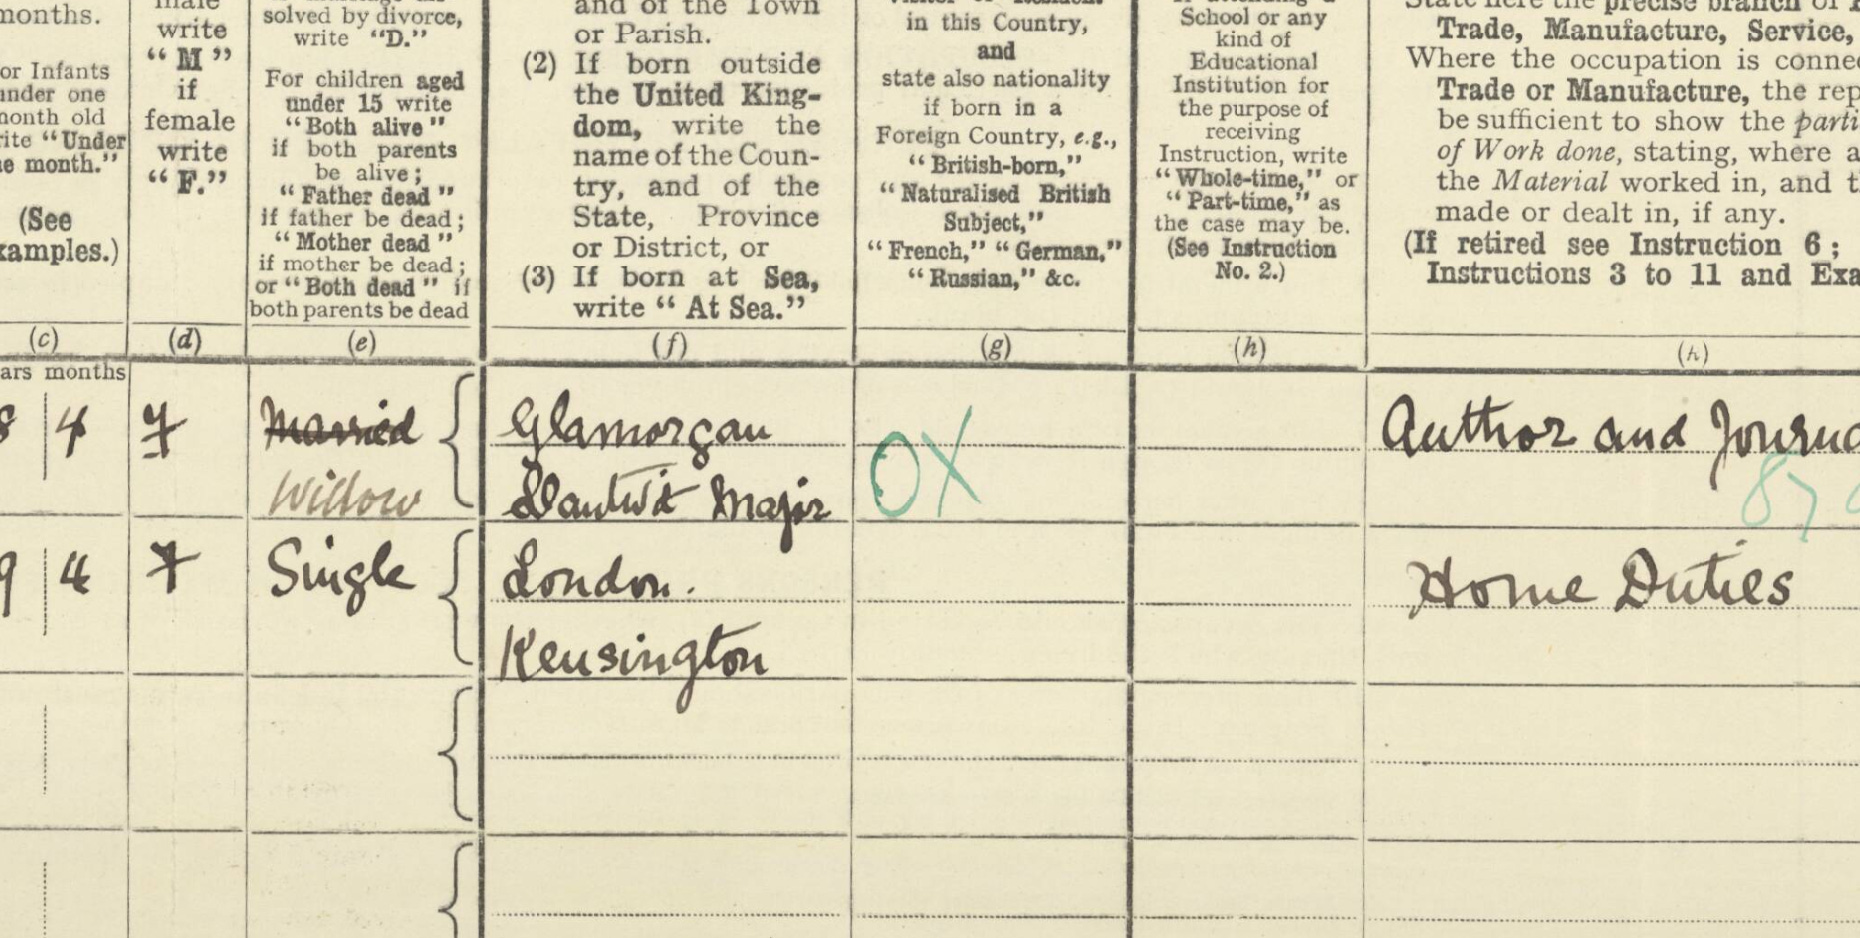 months.
or Infants
under one
month old
rite "Under
e month."
(See
xamples.)
(c)
male
write
"M"
if
female
write
"F."
(d)
solved by divorce,
write "D."
For children aged
under 15 write
"Both alive"
if both parents
be alive;
"Father dead"
if father be dead;
"Mother dead"
if mother be dead;
or "Both dead" if
both parents be dead
(e)
and of the Town
or Parish.
(2) If born outside
the United King-
dom, write the
name of the Coun-
try, and of the
State, Province
or District, or
(3) If born at Sea,
write "At Sea."
(f)
in this Country,
and
state also nationality
if born in a
Foreign Country, e.g.,
"British-born,"
"Naturalised British
Subject,"
"French," "German,"
"Russian," &c.
(g)
School or any
kind of
Educational
Institution for
the purpose of
receiving
Instruction, write
"Whole-time," or
"Part-time," as
the case may be.
(See Instruction
No. 2.)
(h)
State here the precise branch of
Trade, Manufacture, Service,
Where the occupation is connec
Trade or Manufacture, the rep
be sufficient to show the parti
of Work done, stating, where a
the Material worked in, and t
made or dealt in, if any.
(If retired see Instruction 6;
Instructions 3 to 11 and Exa
(k)
ars months
8 4 F Married Glamorgan OX Author and Journa
Widow Llantwit Major 87
9 4 F Single London. Home Duties
Kensington